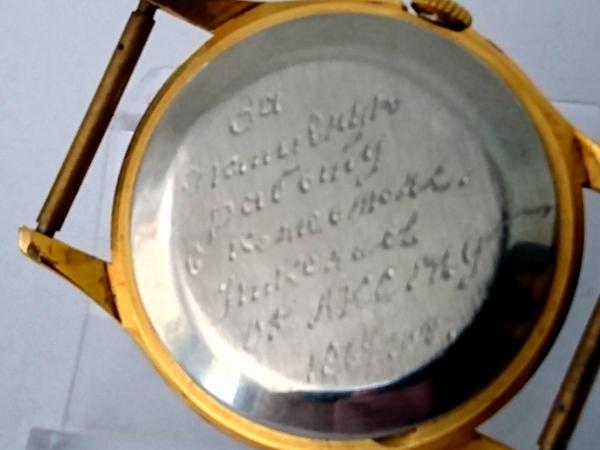 За
активную
работу
в комсомоле.
от ЛКСМУ
1964 год.